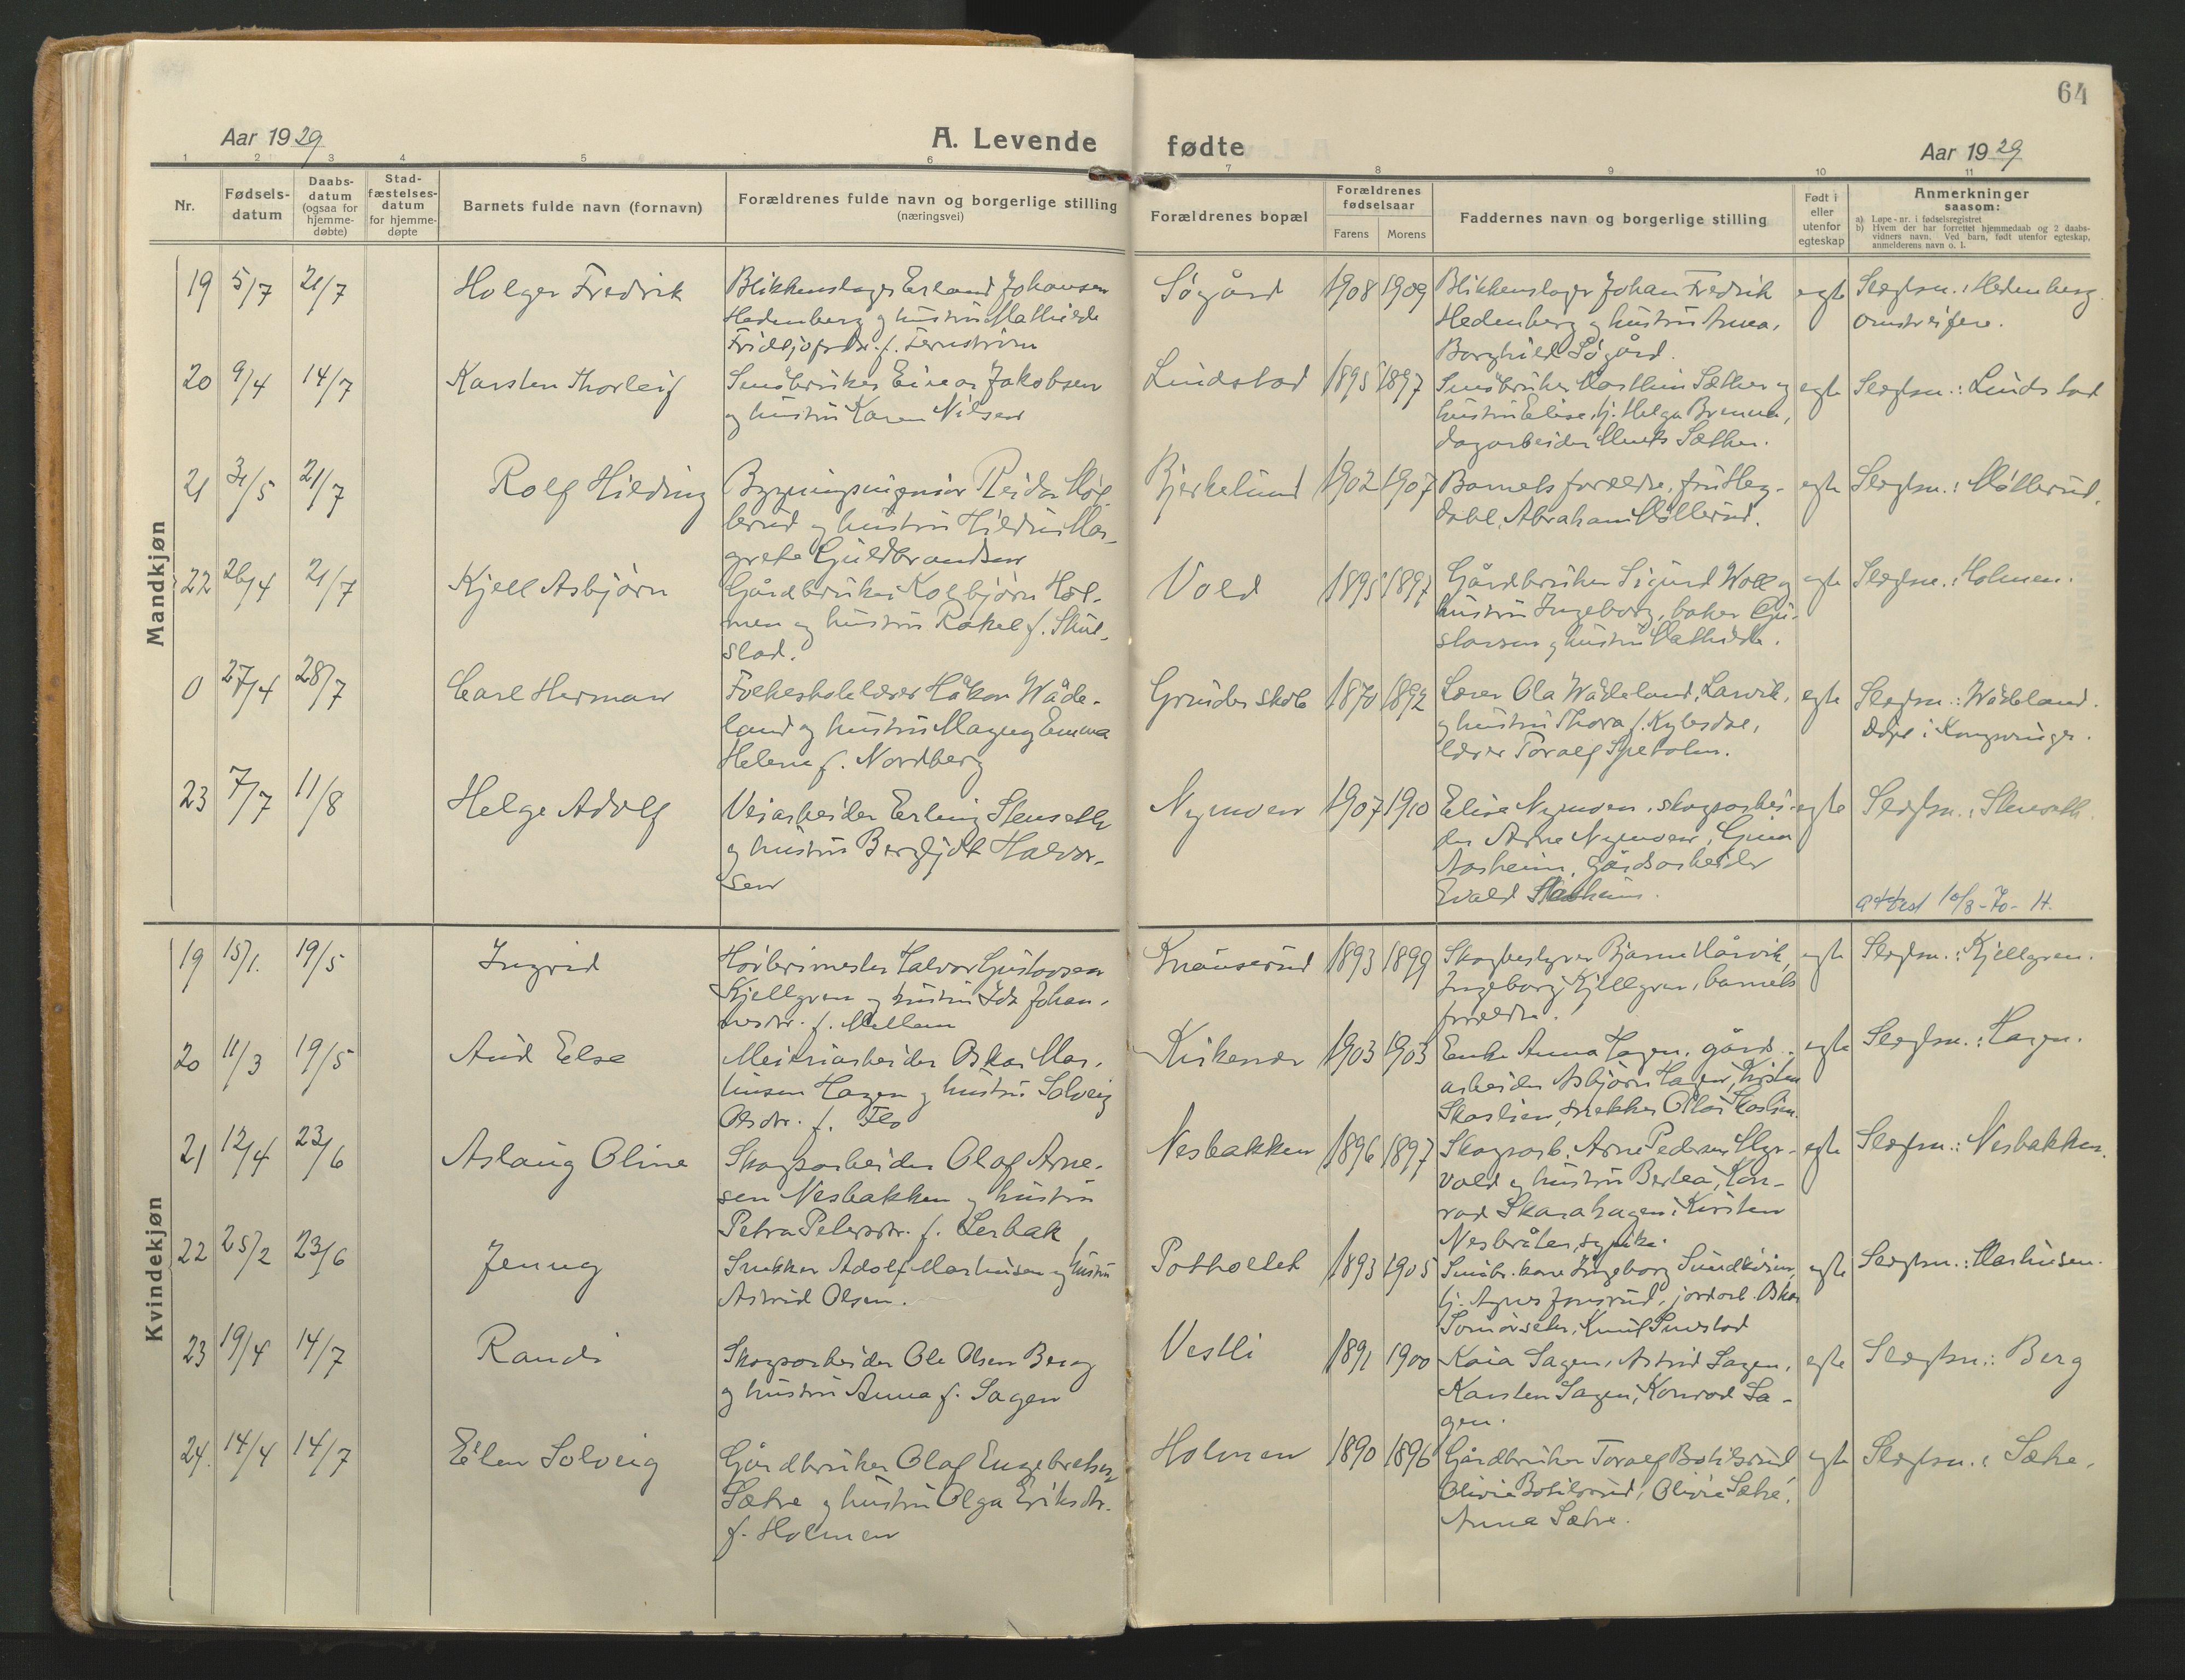 64
Aar 1929
A. Levende fødte
Aar 1929
1 2 3 4 5 6 7 8 9 10 11
Nr.
Fødsels-
datum
Daabs-
datum
(ogsaa for
hjemme-
døbte)
Stad-
fæstelses-
datum
for hjemme-
døpte
Barnets fulde navn (fornavn)
Forældrenes fulde navn og borgerlige stilling
(næringsvei)
Forældrenes bopæl
Forældrenes
fødselsaar
Farens Morens
Faddernes navn og borgerlige stilling
Født i
eller
utenfor
egteskap
Anmerkninger
saasom:
a) Løpe-nr. i fødselsregistret
b) Hvem der har forrettet hjemmedaab og 2 daabs-
vidners navn. Ved barn, født utenfor egteskap,
anmelderens navn o. l.
Mandkjøn
19 5/7 21/7 Holger Fredrik
Blikkenslager Erland Johansen
Hedenberg og hustru Mathilde
Fridtjofsdr. f. Fernstrøm
Søgård 1908 1909
Blikkenslager Johan Fredrik
Hedenberg og hustru Anna,
Borghild Søgård.
egte
Slegtsn.: Hedenberg.
Omstreifere.
20 9/4 14/7 Karsten Thorleif
Småbruker Einar Jakobsen
og hustru Karen Nilsen
Lindstad 1895 1897
Småbruker Marthin Sæther og
hustru Elise, tj. Helga Brenna,
dagarbeider Sæther.
egte
Slegtsn.: Lindstad
21 31/5 21/7 Rolf Hilding
Bygningsingeniør Reidar Møl-
lerud og hustru Hildur Mar-
grete Guldbrandsen
Bjerkelund 1902 1907
Barnets forældre, fru Heg-
dahl, Abraham Møllerud.
egte
Slegtsn.: Møllerud.
22 26/4 21/7 Kjell Asbjørn
Gårdbruker Kolbjørn Hol-
men og hustru Rakel f. Skul-
stad.
Vold 1895 1897
Gårdbruker Sigurd Woll og
hustru Ingeborg, baker Gu-
stavsen og hustru Mathilde.
egte
Slegtsn.: Holmen.
0 27/4 28/7 Carl Herman
Folkeskolelærer Håkon Wåde-
land og hustru Magny Emma
Helene f. Nordberg
Grinder skole 1870 1892
Lærer Ola Wådeland, Larvik,
og hustru Thora f. Kylesdal,
lærer Toralf Spetalen.
egte
Slegtsn.: Wådeland.
Døpt i Kongsvinger.
23 7/7 11/8 Helge Adolf
Veiarbeider Erling Stenseth
og hustru Bergljot Halvor-
sen
Nymoen 1907 1910
Elise Nymoen, skogsarbei-
der Arne Nymoen, Gina
Aasheim, gårdsarbeider
Evald Aasheim.
egte
Slegtsn.: Stenseth.
attest 10/3-70- H.
Kvindekjøn
19 15/1. 19/5 Ingrid
Halvor Gustavsen
Kjellgren og hustru Ida Johan-
nesdr. f. Mellem
Knauserud 1893 1899
Skogbestyrer Bjarne Hårvik,
Ingeborg Kjellgren, barnets
forældre.
egte
Slegtsn.: Kjellgren.
20 11/3 19/5 Aud Else
Meieriarbeider Oskar Mar-
tinsen Hagen og hustru Solveig
Olsdr. f. Flo
Kirkenær 1903 1903
Enke Anna Hagen, gårds-
arbeider Asbjørn Hagen, Kirsten
Skaslien, snekker Skaslien.
egte
Slegtsn.: Hagen.
21 12/4 23/6 Aslaug Oline
Skogsarbeider Olaf Arne-
sen Nesbakken og hustru
Petra Petersdr. f. Lerbak
Nesbakken 1896 1897
Skogsarb. Arne Pedersen Myr-
vold og hustru Bertea, Kon-
rad Skarahagen, Kirsten
Nesbråten, sypike.
egte
Slegtsn.: Nesbakken.
22 25/2 23/6 Jenny
Snekker Adolf Marthinsen og hustru
Astrid Olsen.
Pottoltet 1893 1905
Småbr. kone Ingeborg
tj. Agnes jordarb. Oskar
Knut
egte
Slegtsn.: Marthinsen.
23 19/4 14/7 Randi
Skogsarbeider Ole Olsen Berg
og hustru Anna f. Sagen
Vestli 1891 1900
Kaia Sagen, Astrid Sagen,
Karsten Sagen, Konrad Sa-
gen.
egte
Slegtsn.: Berg
24. 14/4 14/7 Eilen Solveig
Gårdbruker Olaf Engebretsen
Sætre og hustru Olga Eriksdr.
f. Holmen
Holmen 1890 1896
Gårdbruker Toralf Botilsrud
Olivia Botilsrud, Olivia Sætre,
Anna Sætre.
egte
Slegtsn.: Sætre.